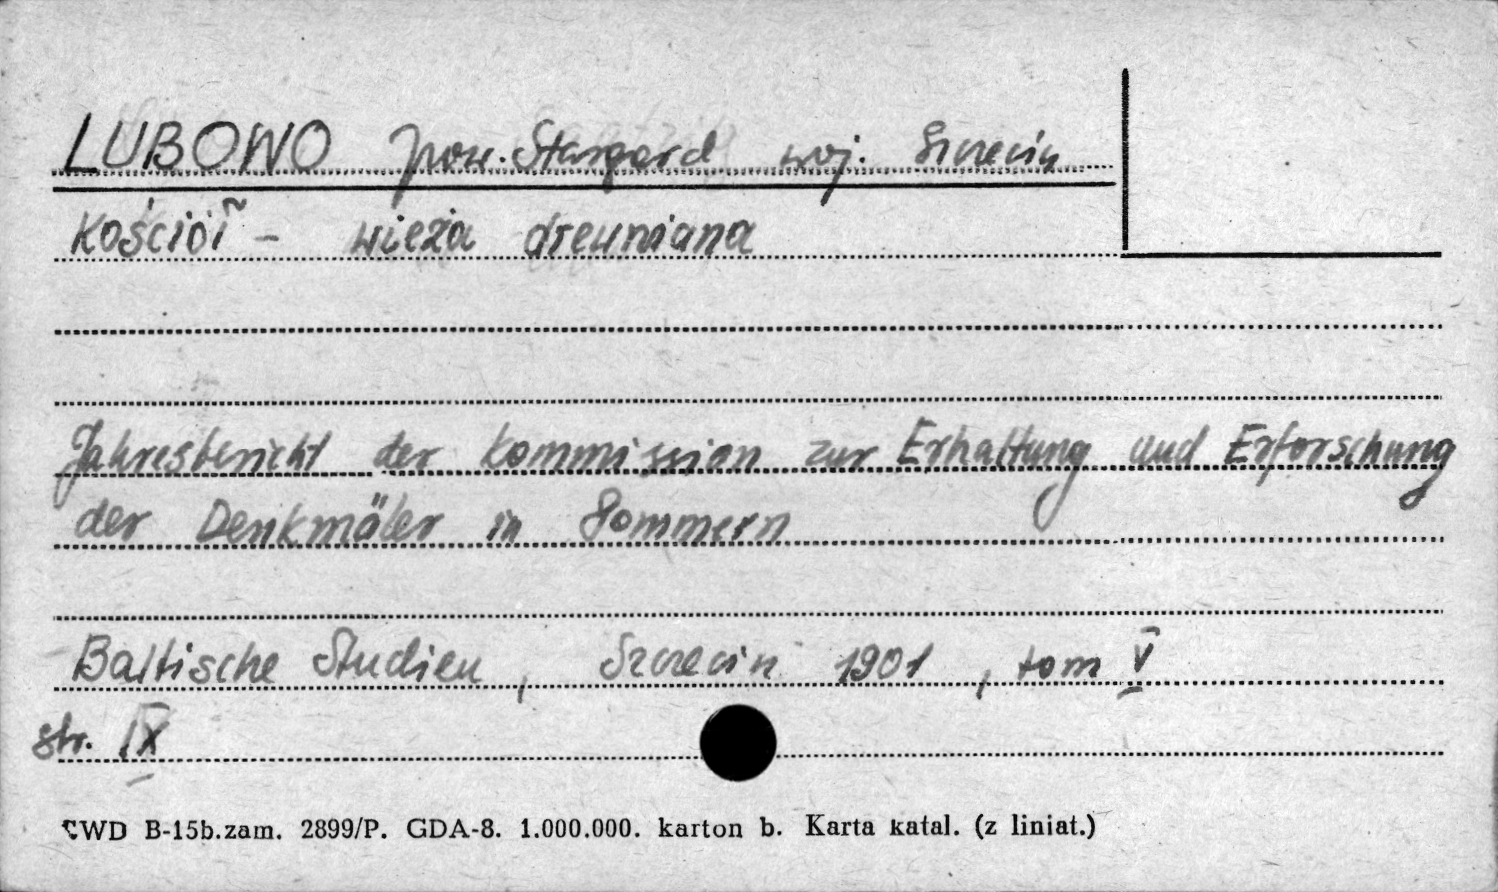 LUBOWO pow. Stargard woj. Szczecin
Kościół - wieża drewniana
Jahresbericht der Kommission zur Erhaltung und Erforschung
der Denkmäler in Pommern
Baltische Studien, Szczecin 1901, tom V
str. IX
CWD B-15b.zam. 2899/P. GDA-8. 1.000.000. karton b. Karta katal. (z liniat.)